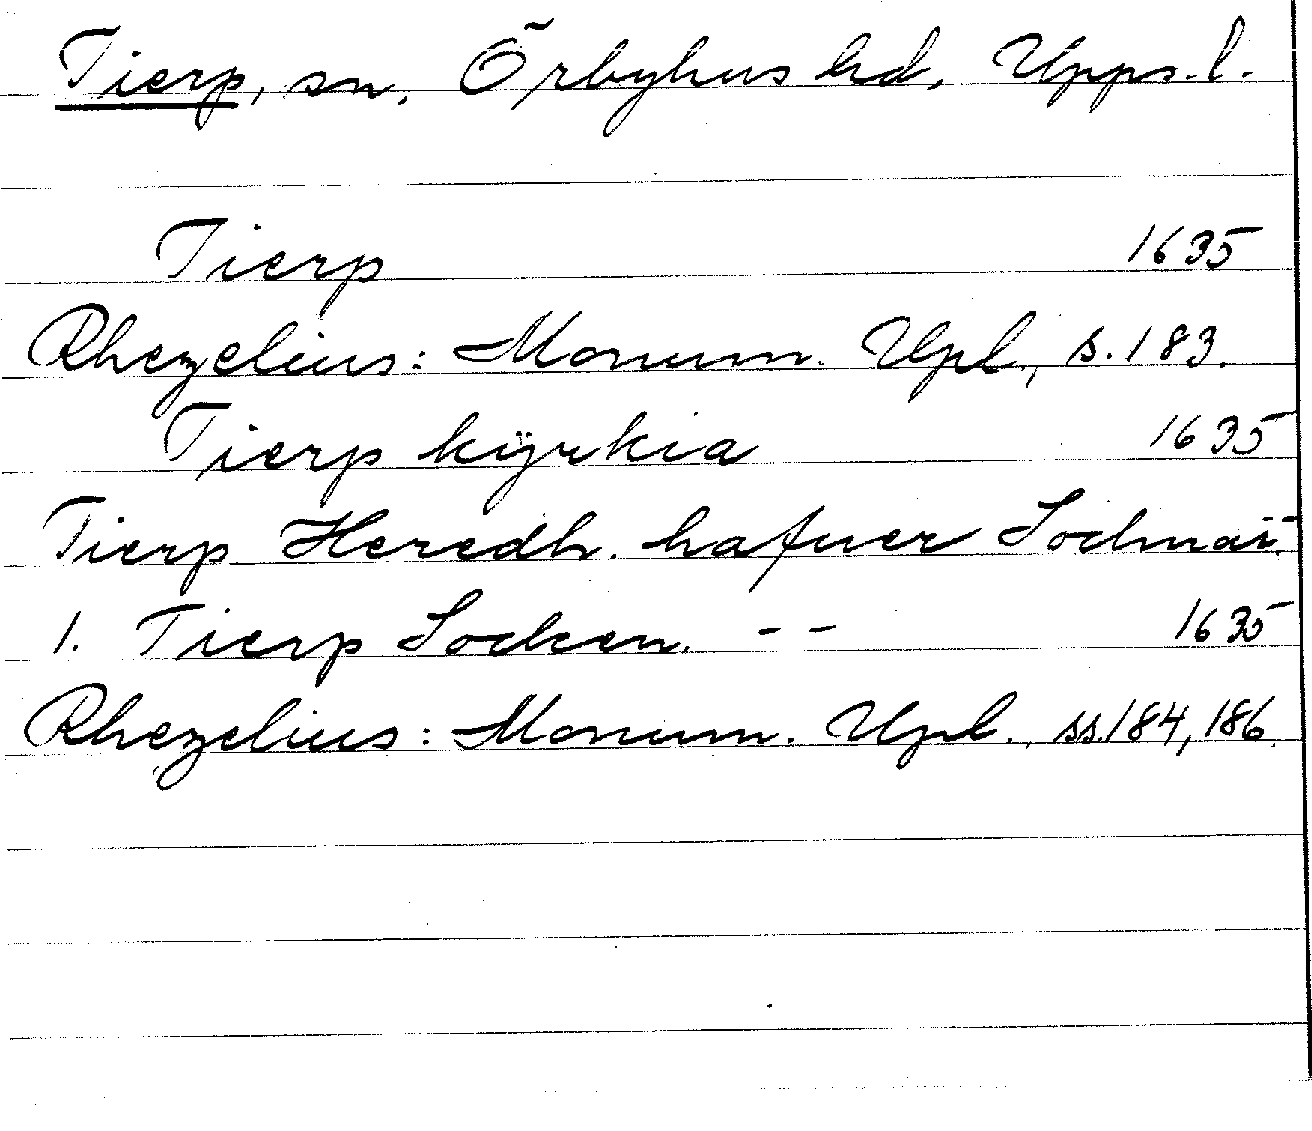 Tierp, sn, Örbyhus hd, Upps. l.
Tierp 1635
Rhezelius: Monum. Upl., s. 183.
Tierp kÿrkia 1635
Tierp Heredh. hafuer
1. Tierp Socken. - - 1635
Rhezelius: Monum. Upl., ss. 184, 186.